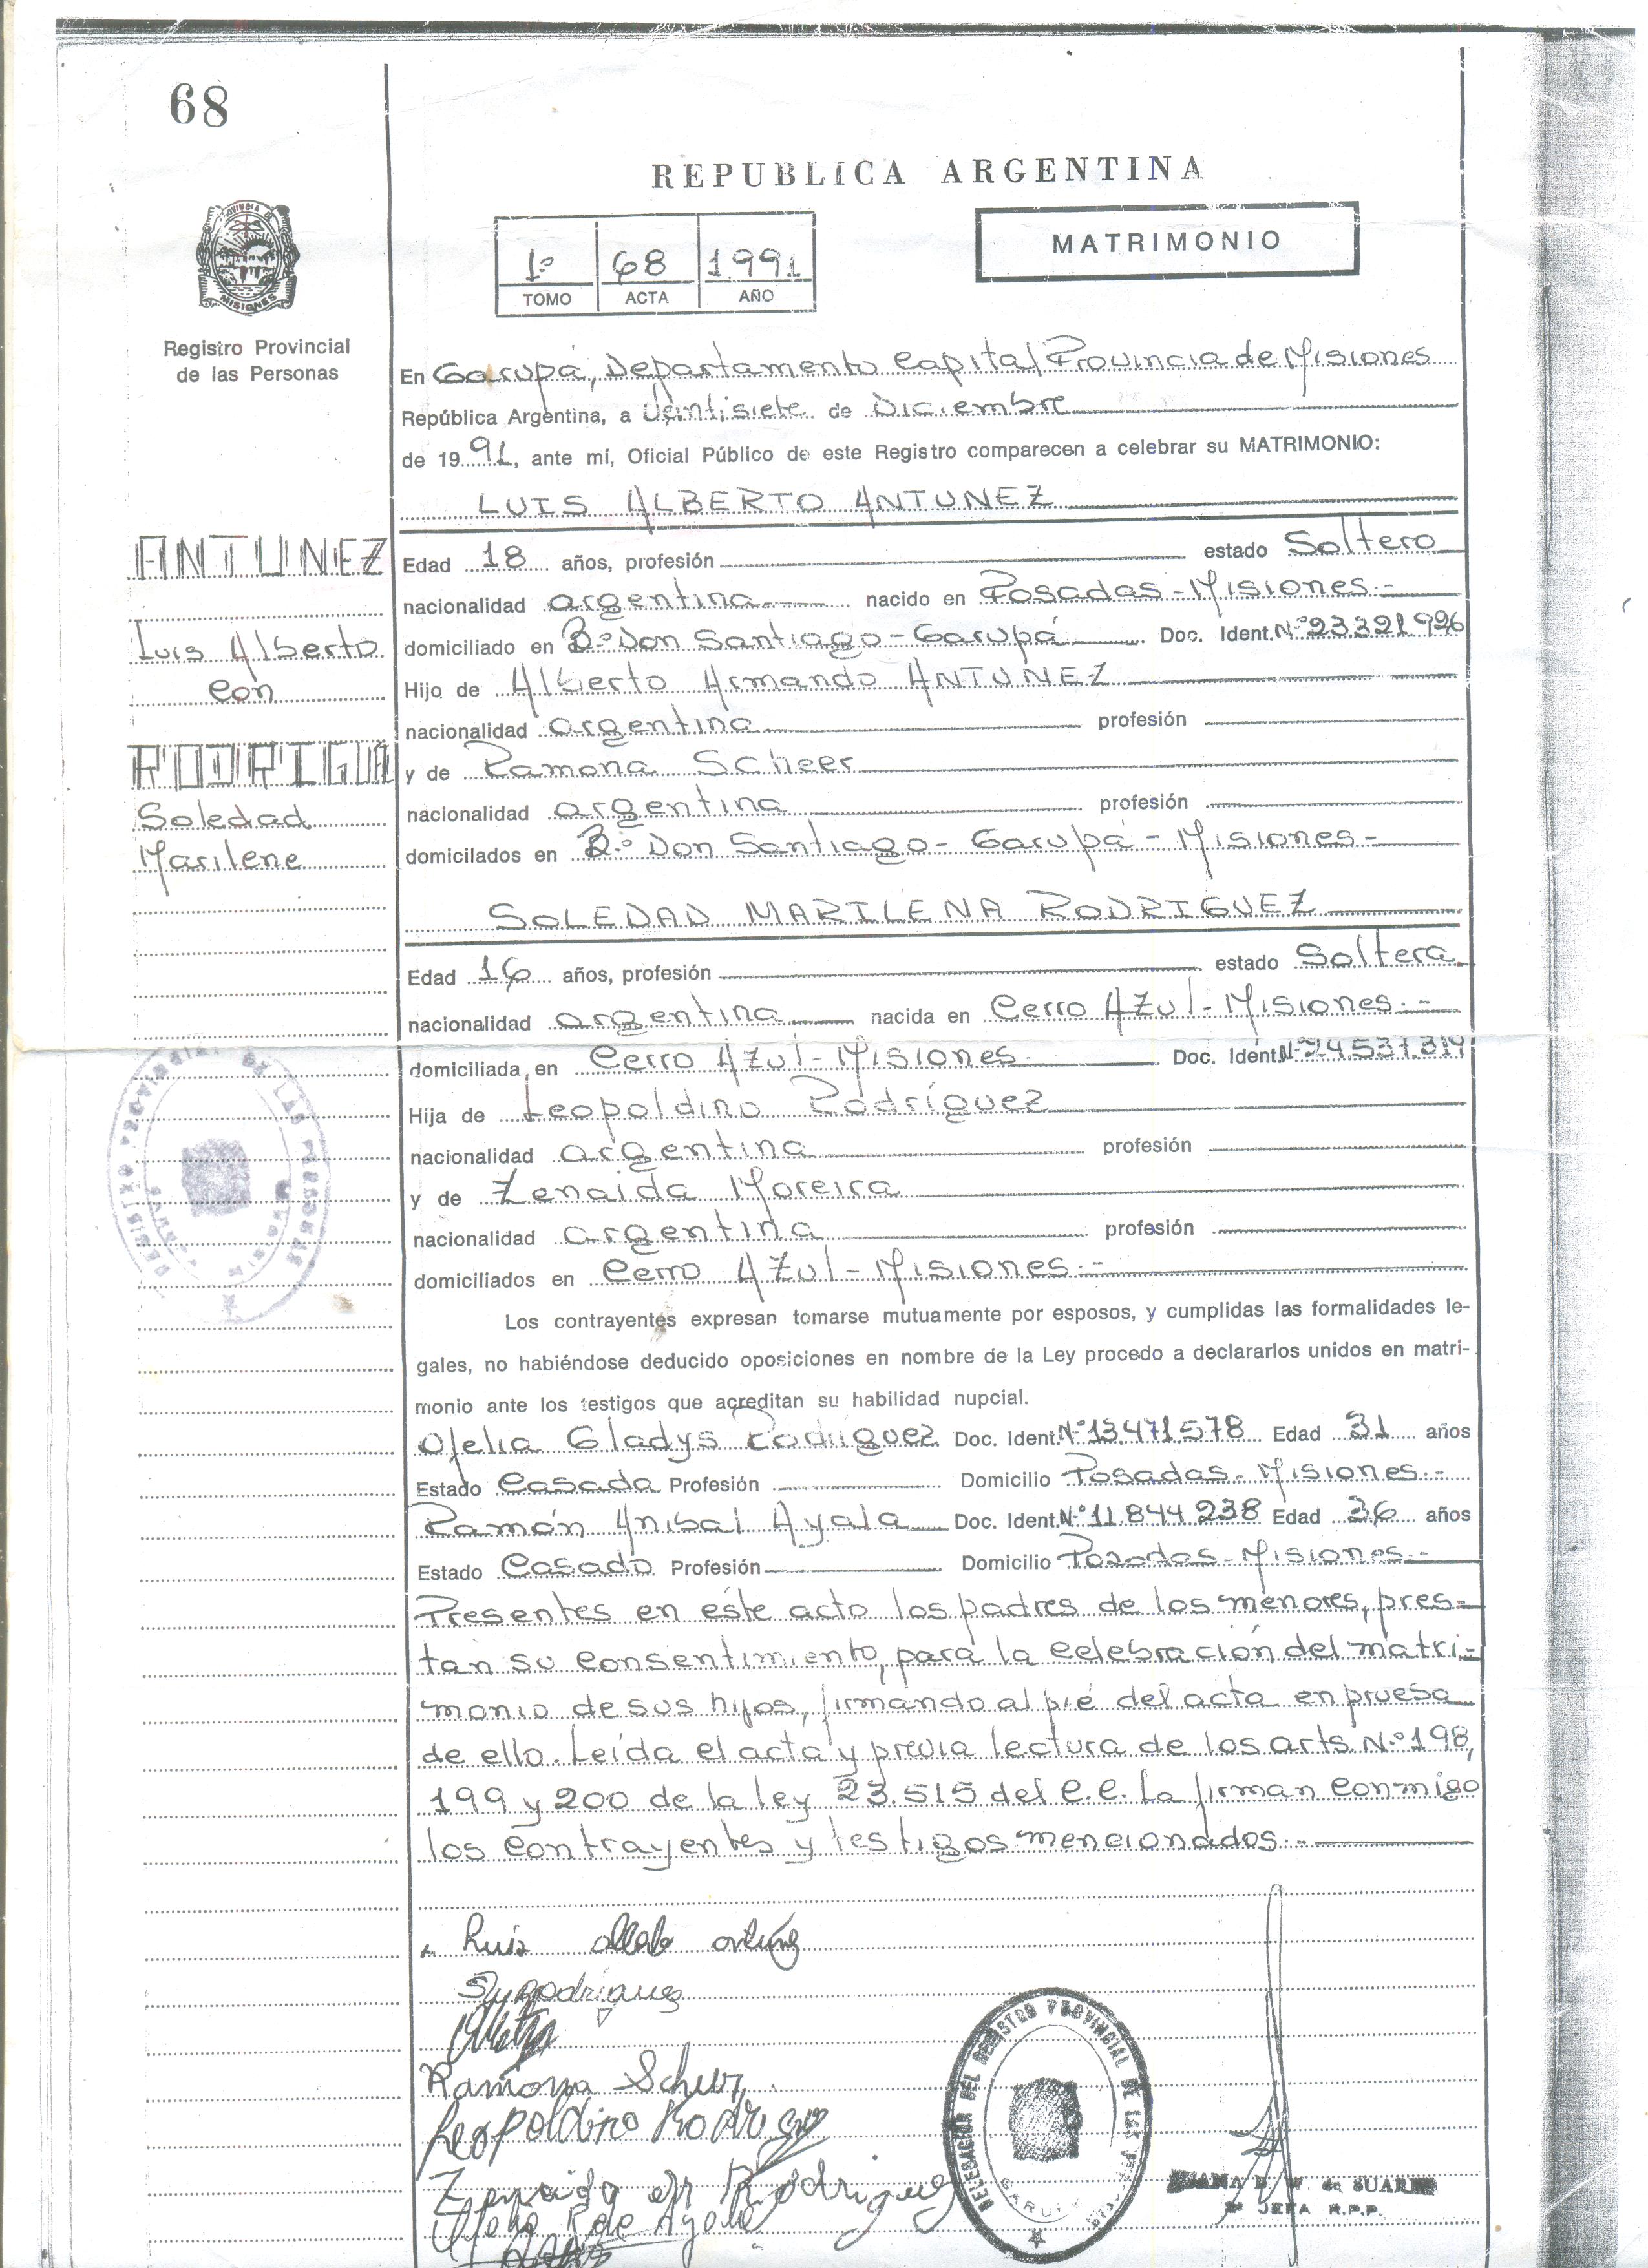 68
REPUBLICA ARGENTINA
MATRIMONIO
1º 68 1991
TOMO ACTA AÑO
PROVINCIA DE
MISIONES
Registro Provincial
de las Personas
En Garupá, Departamento Capital Provincia de Misiones
República Argentina, a veintisiete de Diciembre
de 1991, ante mí, Oficial Público de este Registro comparecen a celebrar su MATRIMONIO:
LUIS ALBERTO ANTUNEZ
ANTUNEZ
Luis Alberto
con
Edad 18 años, profesión estado Soltero
nacionalidad argentina nacido en Posadas - Misiones.-
domiciliado en Bº Don Santiago - Garupá Doc. Ident. Nº 23321926
Hijo de Alberto Armando ANTUNEZ
nacionalidad argentina profesión
RODRIGUE
Soledad
Marilene
y de Ramona Scheer
nacionalidad argentina profesión
domicilados en Bº Don Santiago - Garupá - Misiones-
SOLEDAD MARILENA RODRIGUEZ
Edad 16 años, profesión estado Soltera
nacionalidad argentina nacida en Cerro Azul - Misiones.-
domiciliada en Cerro Azul - Misiones- Doc. Ident. Nº
Hija de Leopoldino Rodríguez
nacionalidad argentina profesión
y de Zenaida Moreira
nacionalidad argentina profesión
domiciliados en Cerro Azul - Misiones.-
Los contrayentes expresan tomarse mutuamente por esposos, y cumplidas las formalidades le-
gales, no habiéndose deducido oposiciones en nombre de la Ley procedo a declararlos unidos en matri-
monio ante los testigos que acreditan su habilidad nupcial.
Ofelia Gladys Rodríguez Doc. Ident. Nº 13.471.578 Edad 31 años
Estado Casada Profesión Domicilio Posadas - Misiones.-
Ramón Anibal Ayala Doc. Ident. Nº 11.844.238 Edad 36 años
Estado Casado Profesión Domicilio Posadas - Misiones.-
Presentes en éste acto los padres de los menores, pres-
tan su consentimiento, para la celebración del matri-
monio de sus hijos, firmando al pié del acta en prueba
de ello. Leída el acta y previa lectura de los arts. Nº 198,
199 y 200 de la ley 23.515 del C.C. La firman conmigo
los contrayentes y testigos mencionados.-
Luis
Rodríguez
Ramona
Leopoldino
Zenaida Rodriguez
DELEGACION DEL REGISTRO PROVINCIAL DE LAS
de SUAREZ
JEFA R.P.P.